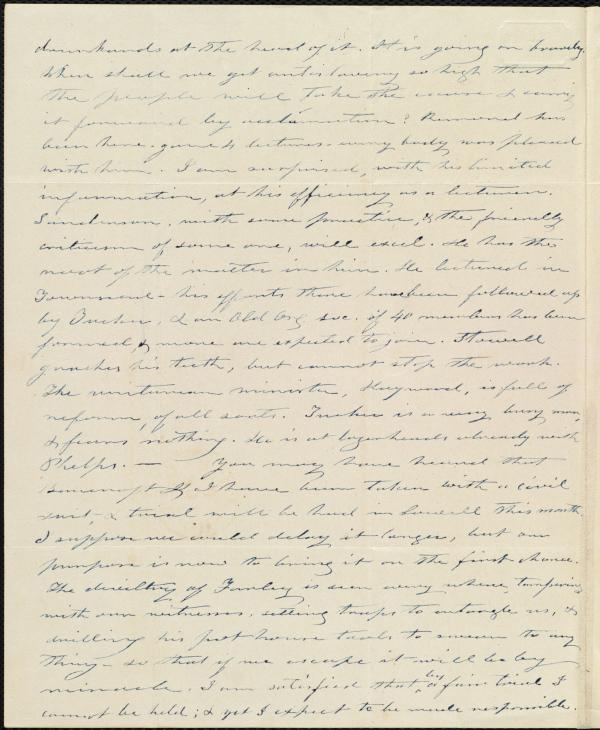 drunkards at the head of it. It is going on bravely.
When shall we get antislavery so high that
the people will take the cause & carry
it forward by acclamation? Remond has
been here. gave 4 lectures. every body was pleased
with him. I am surprised, with his limited
information, at his efficiency as a lecturer.
Sanderson, with some practice, & the friendly
criticism of some one, will excel. He has the
root of the matter in him. He lectured in
Townsend - his efforts there have been followed up
by Tucker, & an Old Org soc. of 40 members has been
formed, & more are expected to join. Stowell
gnashes his teeth, but cannot stop the work.
The unitarian minister, Haywood, is full of
reform, of all sorts. Tucker is a very busy man,
& fears nothing. He is at logerheads already with
Phelps. — You may have heard that
Bancroft & I have been taken with a civil
suit, & trial will be had in Lowell this month.
I suppose we could delay it longer, but our
purpose is now to bring it on the first chance.
The deviltry of Farley is seen every where, tampering
with our witnesses, setting traps to entangle us, &
drilling his pot house tools to swear to any
thing - so that if we escape it will be by
miracle. I am satisfied that by a fair trial I
cannot be held; & yet I expect to be made responsible.